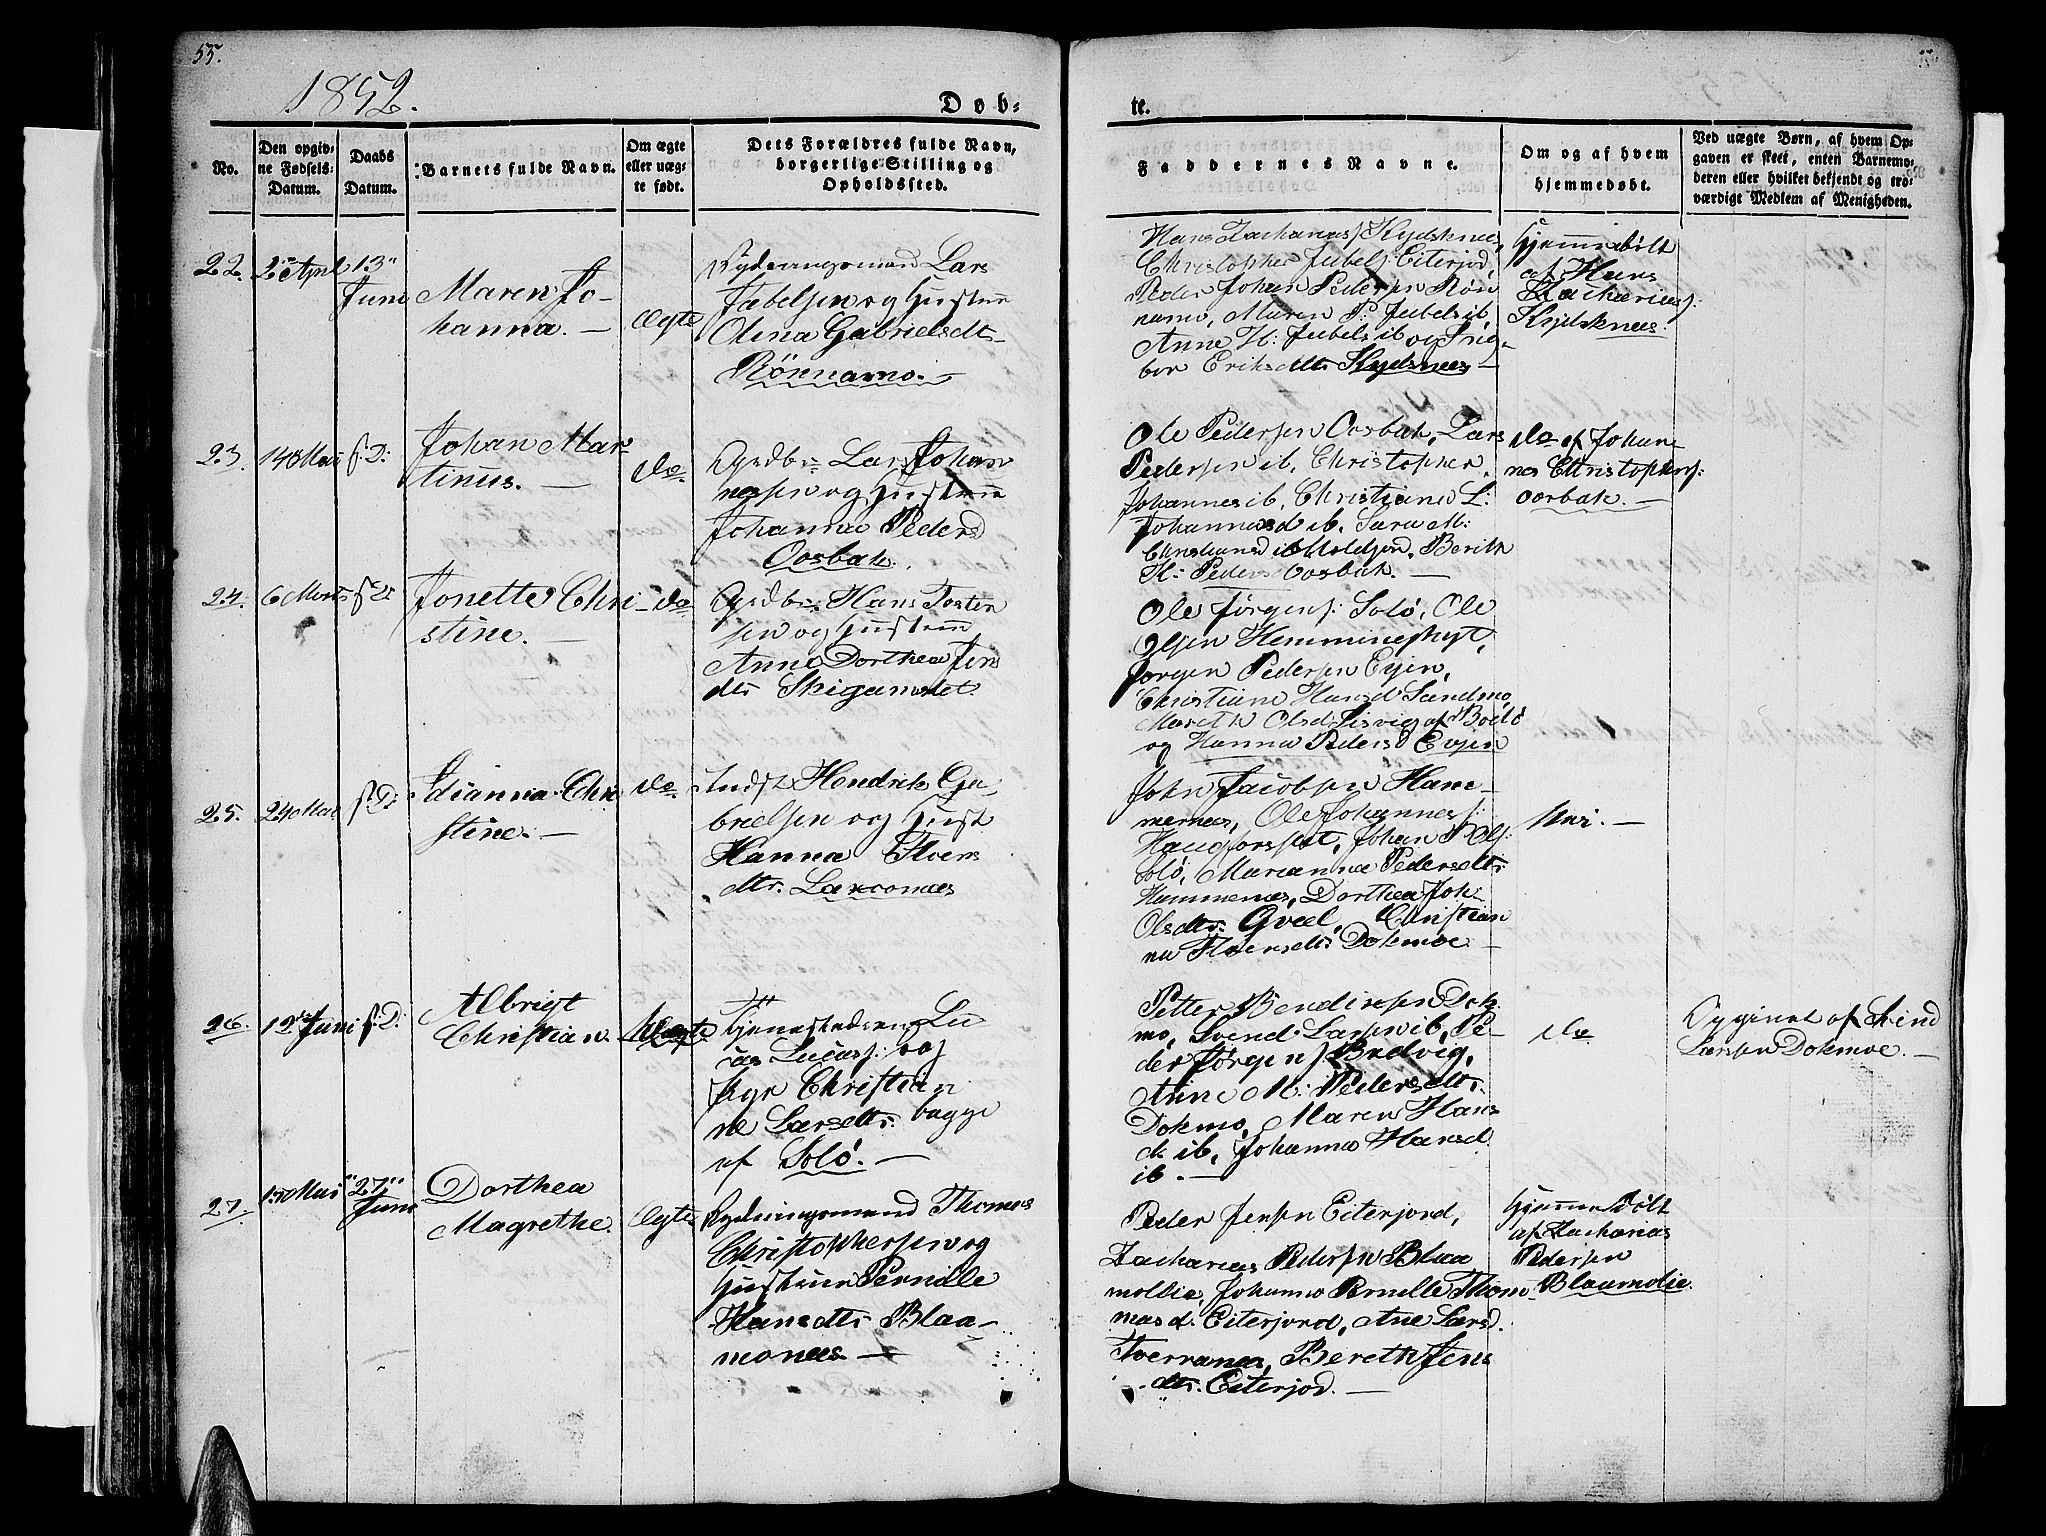 55.
1852.
Døb-
te.
No.
Den opgiv-
ne Fødsels-
Datum.
Daabs
Datum.
Barnets fulde Navn.
Om ægte
eller uæg-
te født.
Dets Forældres fulde Navn,
borgerlige Stilling og
Opholdssted.
Faddernes Navne.
Om og af hvem
hjemmedøbt.
Ved uægte Børn, af hvem Op-
gaven er skeet, enten Barnemo-
deren eller hvilket bekjendt og tro-
værdigt Medlem af Menigheden.
22.
2 April
13
Juni
Maren Jo-
hanna. —
Ægte
Rydningsmand Lars
Jæbelsen og Hustrue
Olina Gabrielsdtr
Rönnamo. —
Hans Zachariasf. Kydsknæs,
Christopher Jubelf. Eiterjod,
Peder Johan Pedersen Rön
namo, Maren P: Jubels ib,
Anne H: Jubels ib og Inge-
bor Eriksdtr Kydsnæs —
Hjemmedøbt
af Hans
Zachariasf:
Kydsknæs.
23.
14 Mai
s: D:
Johan Mar-
tinus. —
do.
Lars Johan
nesen og Hustrue
Johanna Peders
Oosbak.
Ole Pedersen Oosbak, Lars
Pedersen ib, Christopher
Johannes ib, Christiane L:
Johannesd ib, Sara M:
Christiansd Moldjord, Berith
H: Peders Oosbak. —
do af Johan
nes Christophersf:
Oosbak. —
24.
6 Marts
s D
Jonette Chri-
stine. —
do
Hans Tosten
sen og Hustrue
Anne Dorthea Jens
dtr Skigamslet.
Ole Jörgensf: Solö, Ole
Olsen Hemmingshyt,
Jörgen Pedersen Evjen,
Christiane Hansd Sandmo,
Mareth Olsd Lisvig af Bodö
og Hanna Peders D Evjen
25.
24 Mai
s: D:
Idianna Chri
stine. —
do.
Indst Hendrik Ga-
brielsen og Hust
Hanna Thoers
dtr. Laxomæs
John Jacobsen Ham-
mernæs, Ole Johannesf:
Haugforsset, Johan P. Olf:
Solö, Marianna Pedersdtr
Hammernæs, Dorthea Joh:
Olsdtr. Qvæl, Christian
na Thoersdtr Dokmoe —
Nei. —
26.
12 Juni
s: D:
Albrigt
Christian
Uægte
Tjenestedreng Lu
cas Lucasf: og
Pige Christia
ne Larsdtr. begge
af Solö. —
Petter Bendixsen Dok
mo, Svend Larsen ib, Pe-
der Jörgensf Bredvig,
Anne M: Pedersdtr.
Dokmo, Maren Hans
d: ib, Johanna Hansd
ib. —
do
Opgivet af Svend
Larsen Dokmoe. —
27.
15 Mai
27
Juni
Dorthea
Magrethe.
Ægte
Rydningsmand Thomas
Christophersen og
Hustrue Pernille
Hansdtr Blaa-
monæs —
Peder Jensen Eiterjord,
Zacharias Pedersen Blaa
moldie, Johanna Pernille Thom
masd: Eiterjord, Ane Larsd.
Tverranæs, Bereth Jens
dtr. Eiterjod. —
Hjemmedöbt
af Zacharias
Pedersen
Blaamolie.